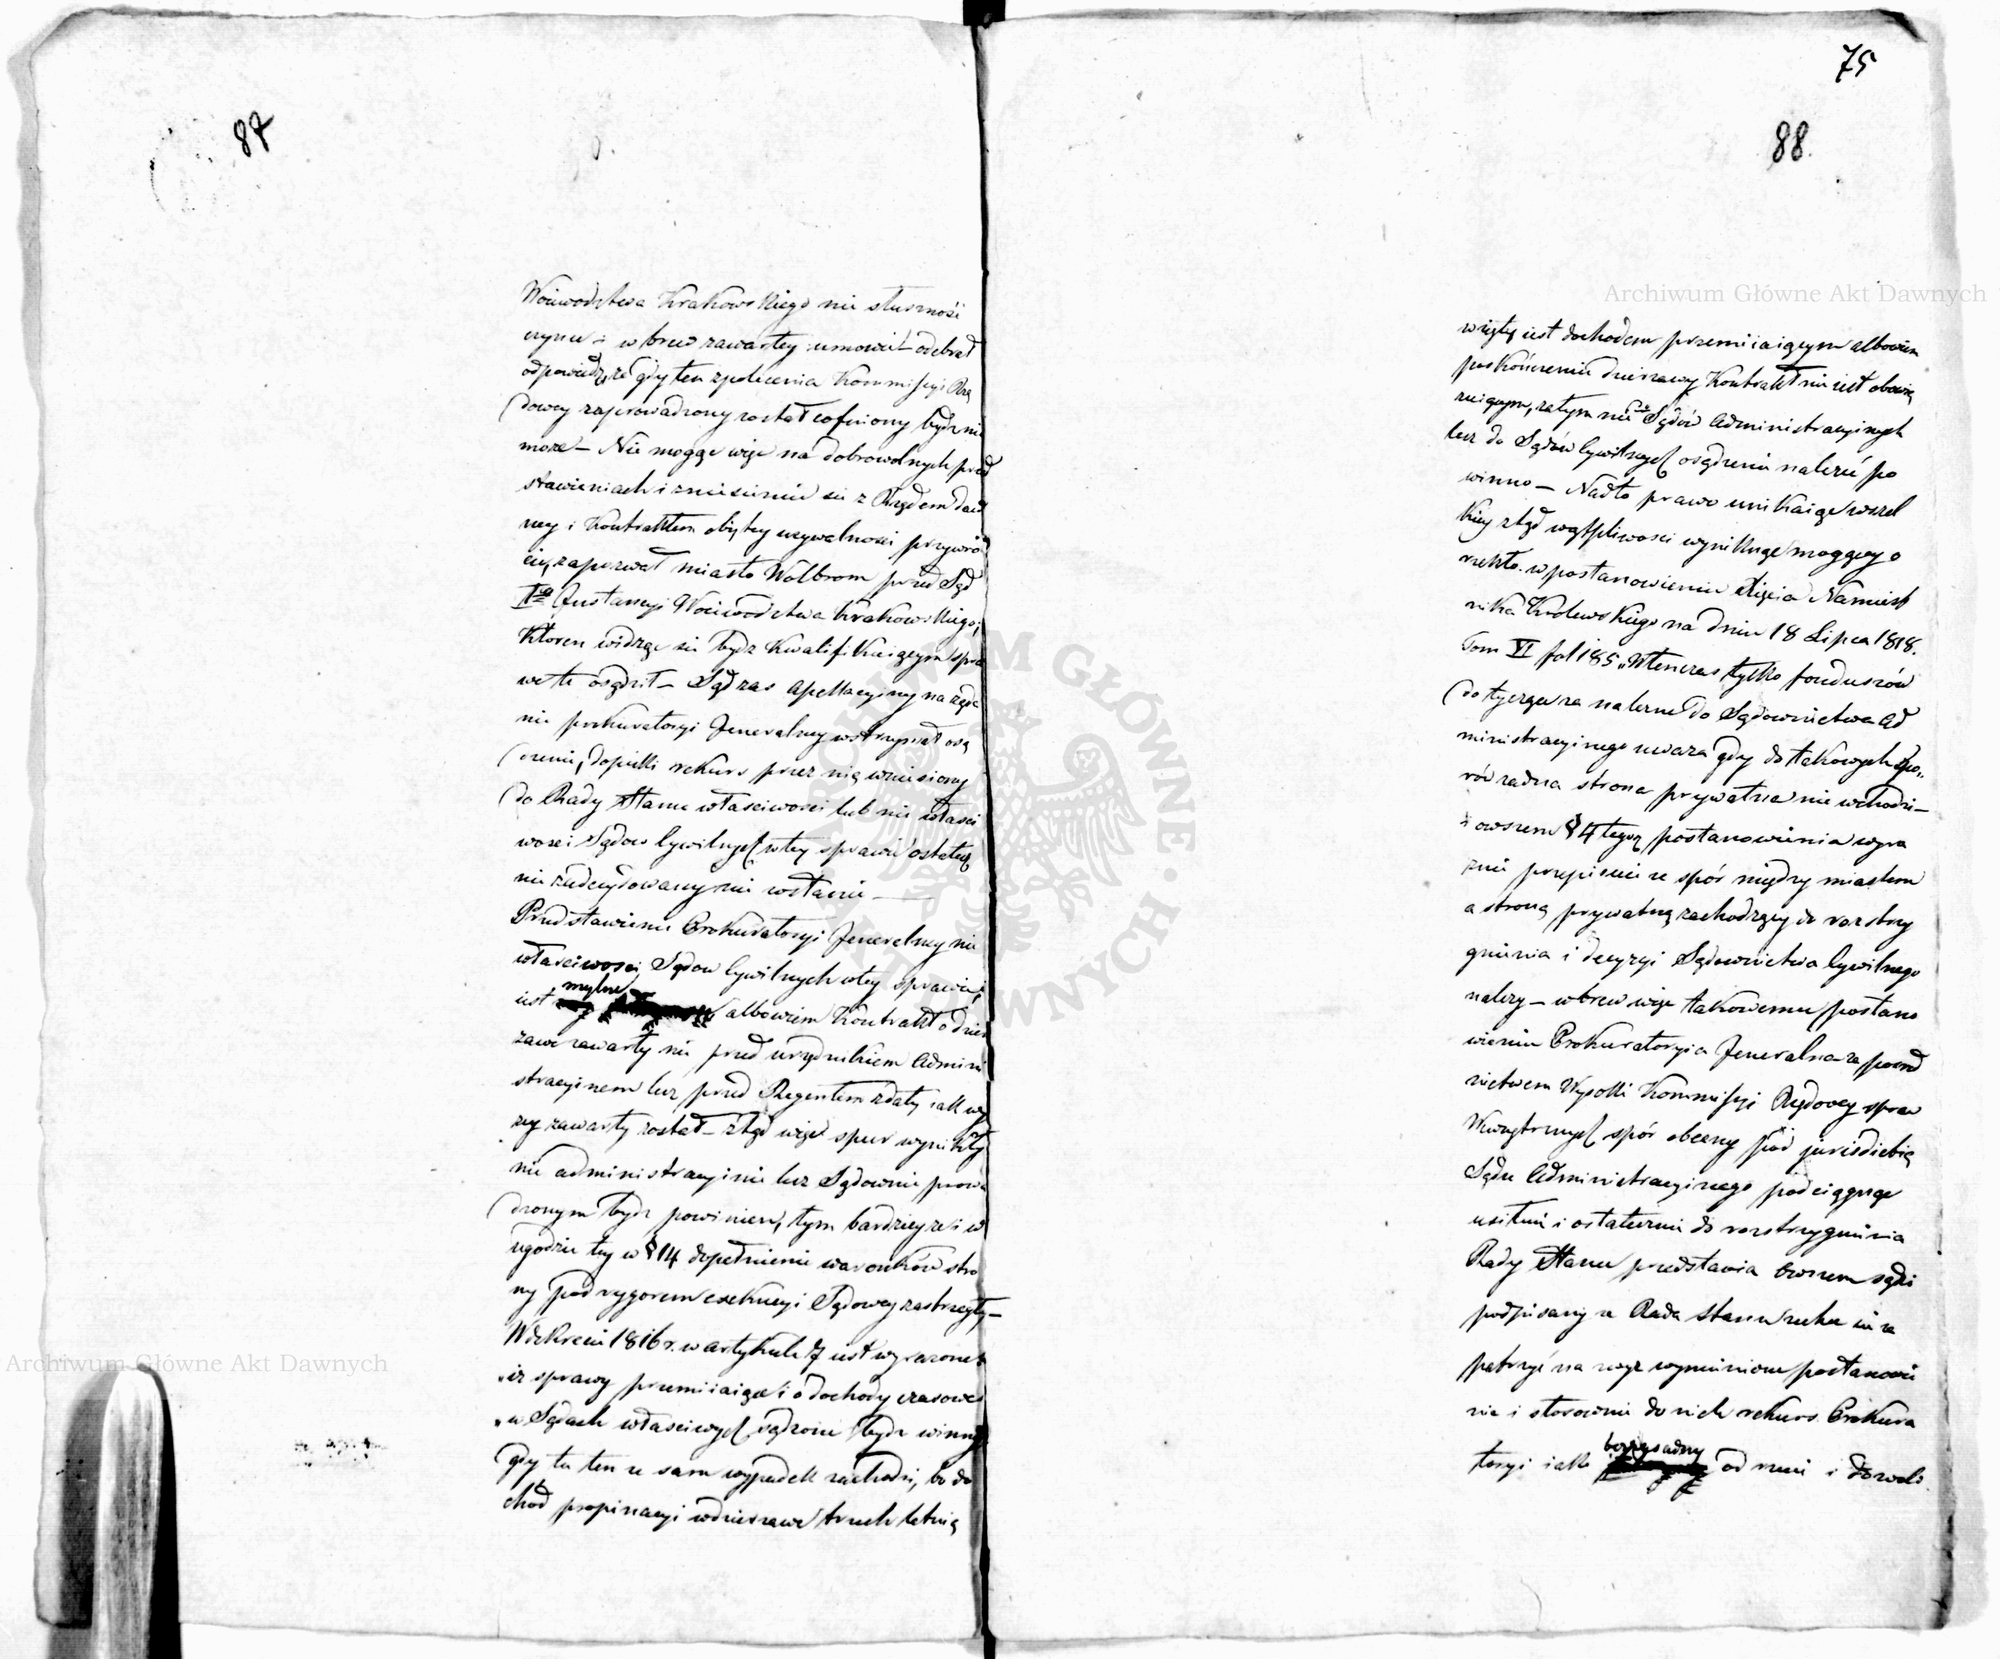 87
Woiewodztwa Krakowskiego nie słuszność
czynu i wbrew zawartey umowie odebrał
odpowiedź, że gdy ten z polecenia Kommissyi Rzą
dowey zaprowadzony został cofniony bydź nie
może – Nie mogąc więc na dobrowolnych przed
stawieniach i zniesieniu sie z Rządem daw
ney i Kontraktem obiętey używalności przywró
cić, zapozwał miasto Wolbrom przed Sąd
Iej Instancyi Woiewodztwa Krakowskiego;
Ktoren widząc sie bydź Kwalifikuiącym spra
wę tę osądził – Sąd zas Apellacyiny na żąda
nie prokuratoryi Jeneralney wstrzymał osą
dzenie, dopokki rekurs przez nią wniesiony
do Rady Stanu właściwości lub nie właści
wości Sądow Cywilnych w tey sprawie ostatecz
nie zadecydowany nie zostanie –
Przedstawienie Prokuratoryi Jeneralney nie
właściwości Sądow Cywilnych w tey sprawie,
iest mylne albowiem Kontrakt o dzier
zawę zawarty nie przed urzędnikiem Admini
stracyinem lecz przed Regentem zdaty iak wy
zey zawarty został – ztąd więc spor wynikły
nie administracyinie lecz Sądownie prowa
dzonym bydź powinien, tym bardziey ze i w
ugodzie tey w § 14 dopełnienie warunków stro
ny pod rygorem exekucyi Sądowey zastrzegły –
W dekrecie 1816 r. w artykule 7 iest wyrazone
„iz sprawy przemiiaiące i o dochody czasowe
„w Sądach właściwych sądzone bydź winny
Gdy tu ten ze sam wypadek zachodzi, bo do
chod propinacyi w dzierzawę trzech letnią
75
88.
wzięty iest dochodem przemiiaiącym albowiem
po skończeniu dzierzawy Kontrakt nie iest obowią
zuiącym, zatym nie do Sądów Administracyinych
lecz do Sądów Cywilnych osądzenie należeć po
winno – Nadto prawo unikaiąc wszel
kiey ztąd wątpliwości wyniknąć mogącey
rzekło w postanowieniu Xięcia Namiest
nika Królewskiego na dniu 18 Lipca 1818.
Tom VI fol 185 „Wtenczas tylko funduszów
dotyczące za należne do Sądownictwa Ad
ministracyinego uważa gdy do takowych spo„
rów zadna strona prywatna nie wchodzi –
i owszem § 4 tegoż postanowienia wyra
źnie przepisuie ze spór między miastem
a stroną prywatną zachodzący do rozstrzy
gnienia i decyzyi Sądownictwa Cywilnego
nalezy – wbrew więc takowemu postano
wieniu Prokuratorya Jeneralna za posred
nictwem Wysokki Kommissyi Rządowey spraw
Wewnętrznych spór obecny pod jurisdikcią
Sądu Administracyinego podciągnąć
usiłuie i ostatecznie do rozstrzygnienia
Rady Stanu przedstawia owszem sądzi
podpisany ze Rada Stanu zechce sie za
patrzyć na wyż wymienione postanowie
nie i stosownie do nich rekurs Prokura
toryi iako bezzasadny od rzuci i dozwoli